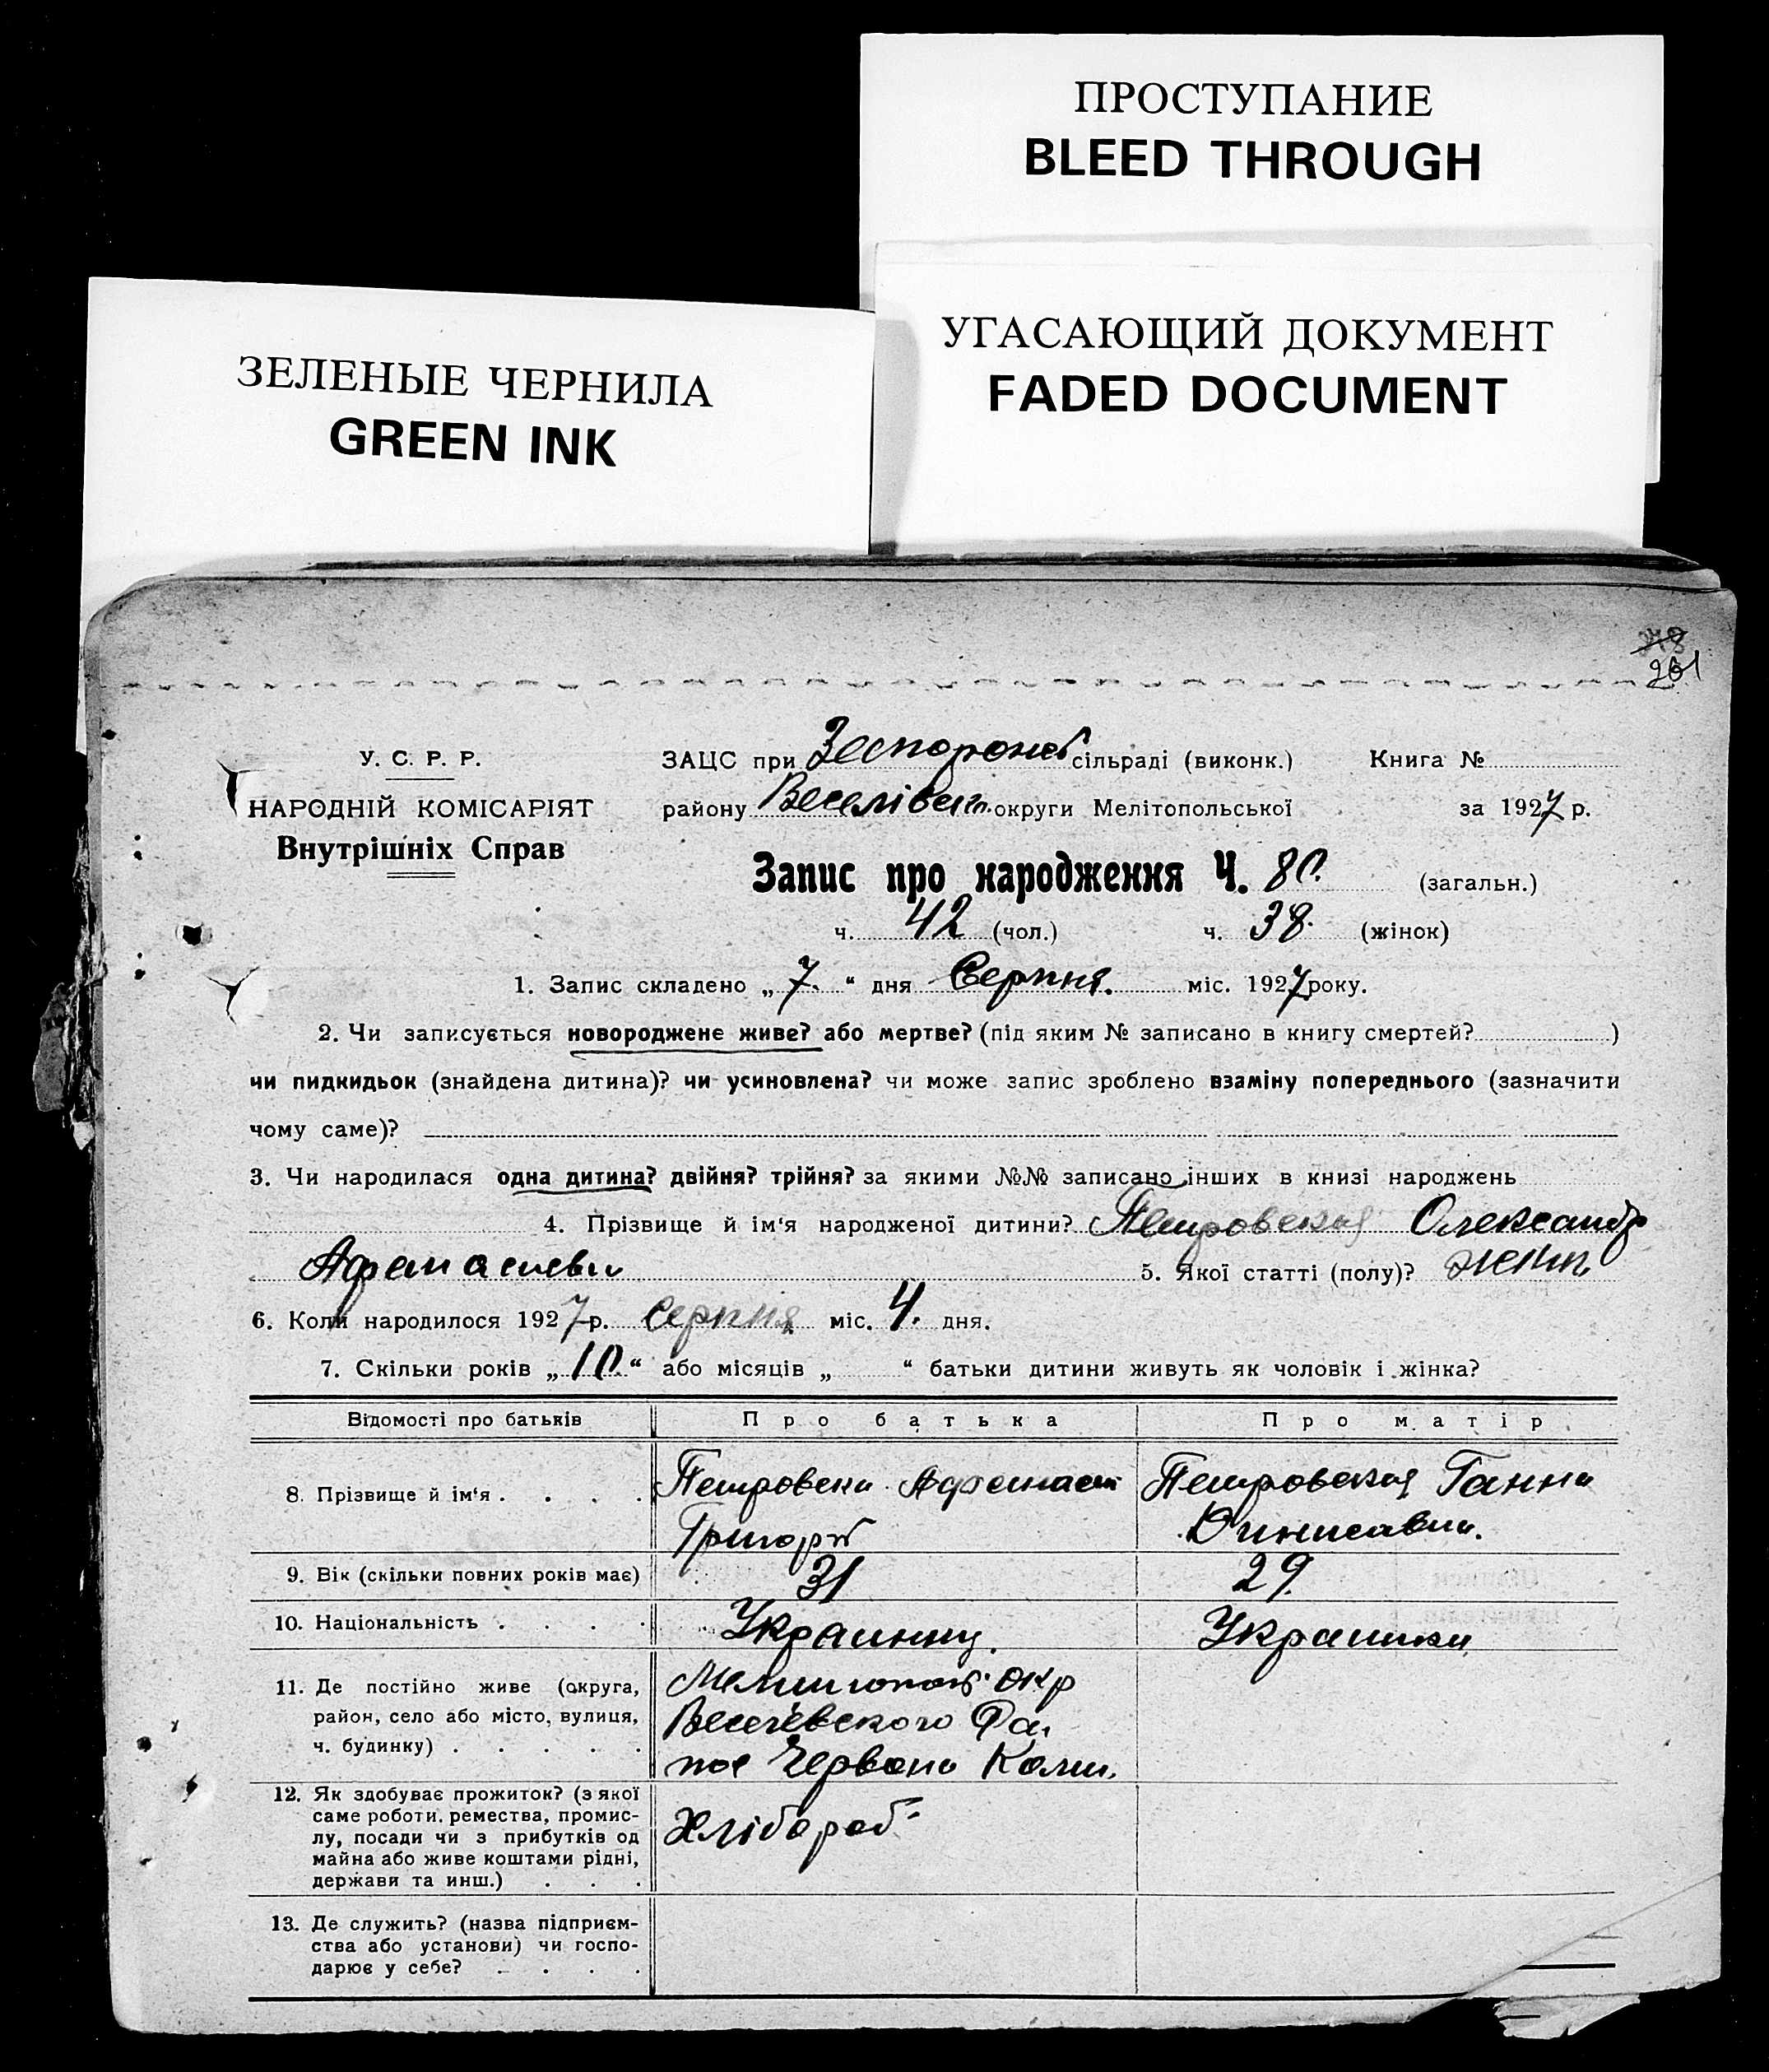 ПРОСТУПАНИЕ
BLEED THROUGH
УГАСАЮЩИЙ ДОКУМЕНТ
FADED DOCUMENT
ЗЕЛЕНЫЕ ЧЕРНИЛА
GREEN INK
261
У. С. Р. Р.
НАРОДНІЙ КОМІСАРІЯТ
Внутрішніх Справ
ЗАЦС при сільраді (виконк.) Книга №
району Веселівськ. округи Мелітопольської за 1927 р.
Запис про народження Ч. 80. (загальн.)
ч. 42 (чол.) ч. 38. (жінок)
1. Запис складено „ 7. “ дня Серпня. міс. 1927 року.
2. Чи записується новороджене живе? або мертве? (під яким № записано в книгу смертей? )
чи пидкидьок (знайдена дитина)? чи усиновлена? чи може запис зроблено взаміну попереднього (зазначити
чому саме)?
3. Чи народилася одна дитина? двійня? трійня? за якими №№ записано інших в книзі народжень
4. Прізвище й ім‘я народженої дитини? Петровская Олександр
5. Якої статті (полу)?
6. Коли народилося 1927 р. Серпня міс. 4. дня.
7. Скільки років „ 10. “ або місяців „ “ батьки дитини живуть як чоловік і жінка?
Відомості про батьків Про батька Про матір
8. Прізвище й ім‘я . . . . Петровски Афанаси Петровская Ганна
Григор
9. Вік (скільки повних років має) 31 29.
10. Національність . . . . Украинец. Украинка
11. Де постійно живе (округа, окр
район, село або місто, вулиця, Веселевского Ра.
ч. будинку) . . . . . пос Червона
12. Як здобуває прожиток? (з якої
саме роботи, ремества, промис-
лу, посади чи з прибутків од Хлібороб
майна або живе коштами рідні,
держави та инш.) . . .
13. Де служить? (назва підприєм-
ства або установи) чи госпо-
дарює у себе? . . . .